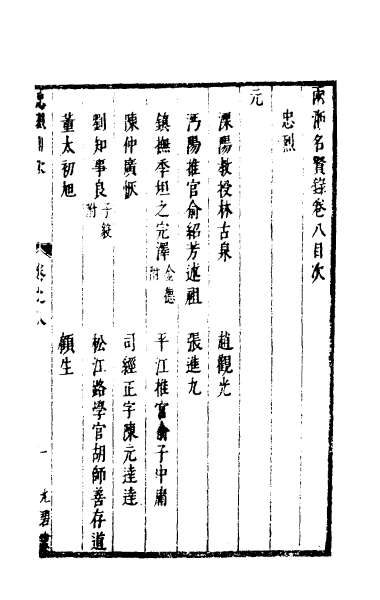 兩浙名賢錄卷八目次
忠烈
元
溧陽教授林古泉
趙觀光
沔陽推官俞紹芳述祖
張進九
鎮撫季坦之完澤 金德附
平江推官俞子中庸
陳仲廣恢
司經正字陳元達達
劉知事良 子毅附
松江路學官胡師善存道
董太初旭
顧生
忠烈目次
卷之八
一
光碧堂